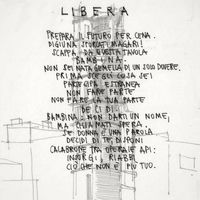 LIBERA
PREPARA IL FUTURO PER CENA.
DIGIUNA SPORCATI MAGARI!
SCAPPA DA QUESTA TAVOLA
BAMBINA.
NON SEI NATA GEMELLA DI UN SOLO DOVERE,
PRIMA SCEGLI COSA SEI
PARTECIPA ESTRANEA
NON FARE PARTE
NON FARE LA TUA PARTE
DECIDI.
BAMBINA: NON DARTI UN NOME,
MA CHIAMATI SPERA.
SE DONNA È UNA PAROLA
DECIDI DI TE, DISPONI
CALABRONE TRA OPERAIE API:
INSORGI, RIABBI
CIÒ CHE NON È PIÙ TUO.